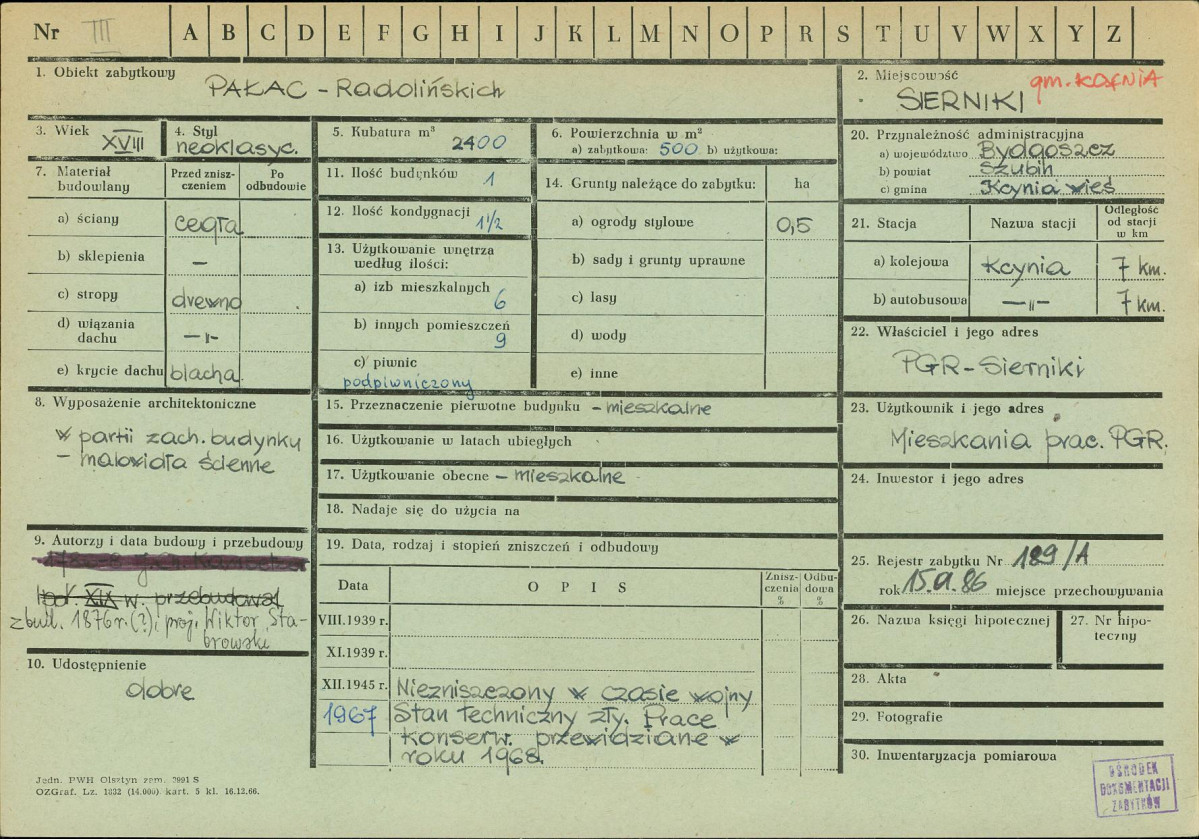 Nr III A B C D E F G H I J K L M N O P R S T U V W X Y Z
1. Obiekt zabytkowy
PAŁAC - Radolińskich
2. Miejscowość
gm. KCYNIA
SIERNIKI
3. Wiek
XVIII
4. Styl
neoklasyc.
5. Kubatura m³
2400
6. Powierzchnia w m²
a) zabytkowa: 500 b) użytkowa:
20. Przynależność administracyjna
a) województwo Bydgoszcz
b) powiat Szubin
c) gmina Kcynia wieś
7. Materiał
budowlany
Przed znisz-
czeniem
Po
odbudowie
a) ściany cegła
b) sklepienia —
c) stropy drewno
d) wiązania
dachu —"—
e) krycie dachu blacha
11. Ilość budynków 1
12. Ilość kondygnacji
1 1/2
13. Użytkowanie wnętrza
według ilości:
a) izb mieszkalnych
6
b) innych pomieszczeń
9
c) piwnic
podpiwniczony
14. Grunty należące do zabytku: ha
a) ogrody stylowe 0,5
b) sady i grunty uprawne
c) lasy
d) wody
e) inne
21. Stacja Nazwa stacji
Odległość
od stacji
w km
a) kolejowa Kcynia 7 km.
b) autobusowa —"— 7 km.
22. Właściciel i jego adres
PGR - Sierniki
8. Wyposażenie architektoniczne
w partii zach. budynku
- malowidła ścienne
15. Przeznaczenie pierwotne budynku - mieszkalne
16. Użytkowanie w latach ubiegłych
17. Użytkowanie obecne - mieszkalne
18. Nadaje się do użycia na
23. Użytkownik i jego adres
Mieszkania prac. PGR.
24. Inwestor i jego adres
9. Autorzy i data budowy i przebudowy
poł. XIX w. przebudował
zbud. 1876 r. (?), proj. Wiktor Sta-
browski
10. Udostępnienie
dobre
19. Data, rodzaj i stopień zniszczeń i odbudowy
Data OPIS
Znisz-
czenia
%
Odbu-
dowa
%
VIII.1939 r.
XI.1939 r.
XII.1945 r. Niezniszczony w czasie wojny
1967 Stan techniczny zły. Prace
konserw. przewidziane w
roku 1968.
25. Rejestr zabytku Nr 189/A
rok 15.II.86 miejsce przechowywania
26. Nazwa księgi hipotecznej
27. Nr hipo-
teczny
28. Akta
29. Fotografie
30. Inwentaryzacja pomiarowa
OŚRODEK
DOKUMENTACJI
ZABYTKÓW
Jedn. PWH Olsztyn zam. 7991 S
OZGraf. Lz. 1832 (14.000) kart. 5 kl. 16.12.66.